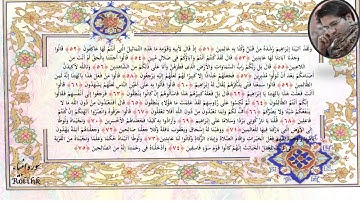 وَلَقَدْ آتَيْنَا إِبْرَاهِيمَ رُشْدَهُ مِنْ قَبْلُ وَكُنَّا بِهِ عَالِمِينَ ﴿٥١﴾ إِذْ قَالَ لِأَبِيهِ وَقَوْمِهِ مَا هَذِهِ التَّمَاثِيلُ الَّتِي أَنْتُمْ لَهَا عَاكِفُونَ ﴿٥٢﴾ قَالُوا
وَجَدْنَا آبَاءَنَا لَهَا عَابِدِينَ ﴿٥٣﴾ قَالَ لَقَدْ كُنْتُمْ أَنْتُمْ وَآبَاؤُكُمْ فِي ضَلَالٍ مُبِينٍ ﴿٥٤﴾ قَالُوا أَجِئْتَنَا بِالْحَقِّ أَمْ أَنْتَ مِنَ
اللَّاعِبِينَ ﴿٥٥﴾ قَالَ بَلْ رَبُّكُمْ رَبُّ السَّمَاوَاتِ وَالْأَرْضِ الَّذِي فَطَرَهُنَّ وَأَنَا عَلَى ذَلِكُمْ مِنَ الشَّاهِدِينَ ﴿٥٦﴾ وَتَاللَّهِ لَأَكِيدَنَّ
أَصْنَامَكُمْ بَعْدَ أَنْ تُوَلُّوا مُدْبِرِينَ ﴿٥٧﴾ فَجَعَلَهُمْ جُذَاذًا إِلَّا كَبِيرًا لَهُمْ لَعَلَّهُمْ إِلَيْهِ يَرْجِعُونَ ﴿٥٨﴾ قَالُوا مَنْ فَعَلَ هَذَا بِآلِهَتِنَا إِنَّهُ لَمِنَ
الظَّالِمِينَ ﴿٥٩﴾ قَالُوا سَمِعْنَا فَتًى يَذْكُرُهُمْ يُقَالُ لَهُ إِبْرَاهِيمُ ﴿٦٠﴾ قَالُوا فَأْتُوا بِهِ عَلَى أَعْيُنِ النَّاسِ لَعَلَّهُمْ يَشْهَدُونَ ﴿٦١﴾ قَالُوا
أَأَنْتَ فَعَلْتَ هَذَا بِآلِهَتِنَا يَا إِبْرَاهِيمُ ﴿٦٢﴾ قَالَ بَلْ فَعَلَهُ كَبِيرُهُمْ هَذَا فَاسْأَلُوهُمْ إِنْ كَانُوا يَنْطِقُونَ ﴿٦٣﴾ فَرَجَعُوا إِلَى أَنْفُسِهِمْ فَقَالُوا
إِنَّكُمْ أَنْتُمُ الظَّالِمُونَ ﴿٦٤﴾ ثُمَّ نُكِسُوا عَلَى رُءُوسِهِمْ لَقَدْ عَلِمْتَ مَا هَؤُلَاءِ يَنْطِقُونَ ﴿٦٥﴾ قَالَ أَفَتَعْبُدُونَ مِنْ دُونِ اللَّهِ مَا لَا
يَنْفَعُكُمْ شَيْئًا وَلَا يَضُرُّكُمْ ﴿٦٦﴾ أُفٍّ لَكُمْ وَلِمَا تَعْبُدُونَ مِنْ دُونِ اللَّهِ أَفَلَا تَعْقِلُونَ ﴿٦٧﴾ قَالُوا حَرِّقُوهُ وَانْصُرُوا آلِهَتَكُمْ إِنْ كُنْتُمْ
فَاعِلِينَ ﴿٦٨﴾ قُلْنَا يَا نَارُ كُونِي بَرْدًا وَسَلَامًا عَلَى إِبْرَاهِيمَ ﴿٦٩﴾ وَأَرَادُوا بِهِ كَيْدًا فَجَعَلْنَاهُمُ الْأَخْسَرِينَ ﴿٧٠﴾ وَنَجَّيْنَاهُ وَلُوطًا
إِلَى الْأَرْضِ الَّتِي بَارَكْنَا فِيهَا لِلْعَالَمِينَ ﴿٧١﴾ وَوَهَبْنَا لَهُ إِسْحَاقَ وَيَعْقُوبَ نَافِلَةً وَكُلًّا جَعَلْنَا صَالِحِينَ ﴿٧٢﴾ وَجَعَلْنَاهُمْ أَئِمَّةً يَهْدُونَ
بِأَمْرِنَا وَأَوْحَيْنَا إِلَيْهِمْ فِعْلَ الْخَيْرَاتِ وَإِقَامَ الصَّلَاةِ وَإِيتَاءَ الزَّكَاةِ وَكَانُوا لَنَا عَابِدِينَ ﴿٧٣﴾ وَلُوطًا آتَيْنَاهُ حُكْمًا وَعِلْمًا وَنَجَّيْنَاهُ مِنَ الْقَرْيَةِ
الَّتِي كَانَتْ تَعْمَلُ الْخَبَائِثَ إِنَّهُمْ كَانُوا قَوْمَ سَوْءٍ فَاسِقِينَ ﴿٧٤﴾ وَأَدْخَلْنَاهُ فِي رَحْمَتِنَا إِنَّهُ مِنَ الصَّالِحِينَ ﴿٧٥﴾